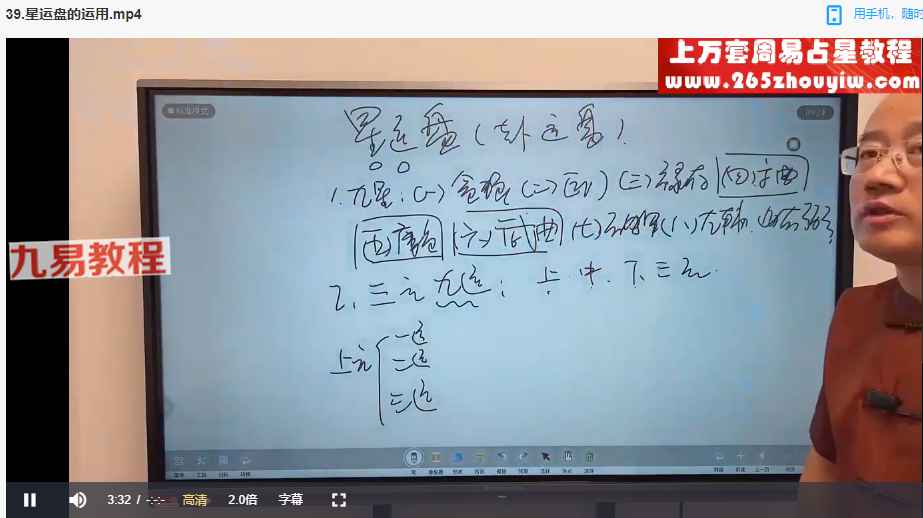 39.星运盘的运用.mp4
用手机，随时
上万套周易占星教程
www.265zhouyiw.com
标准模式
星运盘(卦运盘).
1.九星:(一)贪狼(二)巨门(三)禄存(四)文曲
(五)廉贞(六)武曲(七)破军(八)左辅(九)右弼
九易教程
2、三元九运: 上.中.下.三元.
上元
一运
二运
三运
3:32 / -:-:-
高清
2.0倍
字幕